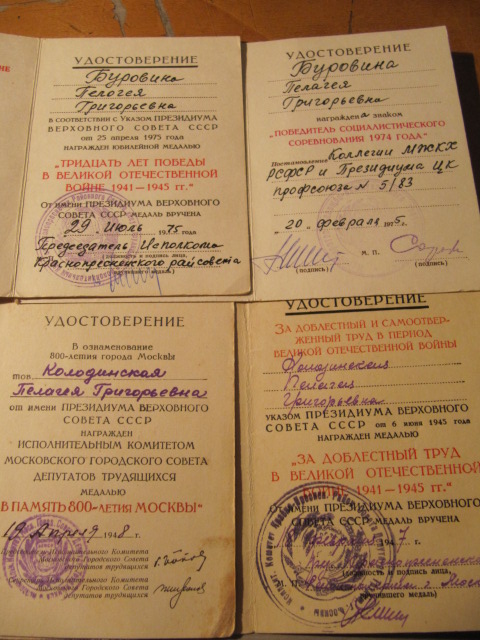 УДОСТОВЕРЕНИЕ
Буровина
Пелагея
Григорьевна
В СООТВЕТСТВИИ С УКАЗОМ ПРЕЗИДИУМА
ВЕРХОВНОГО СОВЕТА СССР
от 25 апреля 1975 года
НАГРАЖДЕН ЮБИЛЕЙНОЙ МЕДАЛЬЮ
„ТРИДЦАТЬ ЛЕТ ПОБЕДЫ
В ВЕЛИКОЙ ОТЕЧЕСТВЕННОЙ
ВОЙНЕ 1941—1945 гг.“
От имени ПРЕЗИДИУМА ВЕРХОВНОГО
СОВЕТА СССР МЕДАЛЬ ВРУЧЕНА
29 Июль 1975 г.
Председатель Исполкома
Краснопресненского райсовета
УДОСТОВЕРЕНИЕ
Буровина
Пелагея
Григорьевна
награждена знаком
"ПОБЕДИТЕЛЬ СОЦИАЛИСТИЧЕСКОГО
СОРЕВНОВАНИЯ 1974 ГОДА"
Постановление Коллегии МЖКХ
РСФСР и Президиума ЦК
профсоюза № 5/83
"20" февраля 1975 г.
М. П.
(подпись) (подпись)
УДОСТОВЕРЕНИЕ
В ознаменование
800-летия города Москвы
тов Колодинская
Пелагея Григорьевна
от имени ПРЕЗИДИУМА ВЕРХОВНОГО
СОВЕТА СССР
НАГРАЖДЕН
ИСПОЛНИТЕЛЬНЫМ КОМИТЕТОМ
МОСКОВСКОГО ГОРОДСКОГО СОВЕТА
ДЕПУТАТОВ ТРУДЯЩИХСЯ
МЕДАЛЬЮ
„В ПАМЯТЬ 800-ЛЕТИЯ МОСКВЫ“
19 Апреля 1948 г.
Председатель Исполнительного Комитета
Московского Городского Совета
депутатов трудящихся
Секретарь Исполнительного Комитета
Московского Городского Совета
депутатов трудящихся
УДОСТОВЕРЕНИЕ
ЗА ДОБЛЕСТНЫЙ И САМООТВЕР-
ЖЕННЫЙ ТРУД В ПЕРИОД
ВЕЛИКОЙ ОТЕЧЕСТВЕННОЙ ВОЙНЫ
Пелагея
Григорьевна
УКАЗОМ ПРЕЗИДИУМА ВЕРХОВНОГО
СОВЕТА СССР от 6 июня 1945 года
НАГРАЖДЕН МЕДАЛЬЮ
„ЗА ДОБЛЕСТНЫЙ ТРУД
В ВЕЛИКОЙ ОТЕЧЕСТВЕННОЙ
1941—1945 гг.“
От имени ПРЕЗИДИУМА ВЕРХОВНОГО
СОВЕТА СССР МЕДАЛЬ ВРУЧЕНА
(должность и подпись лица,